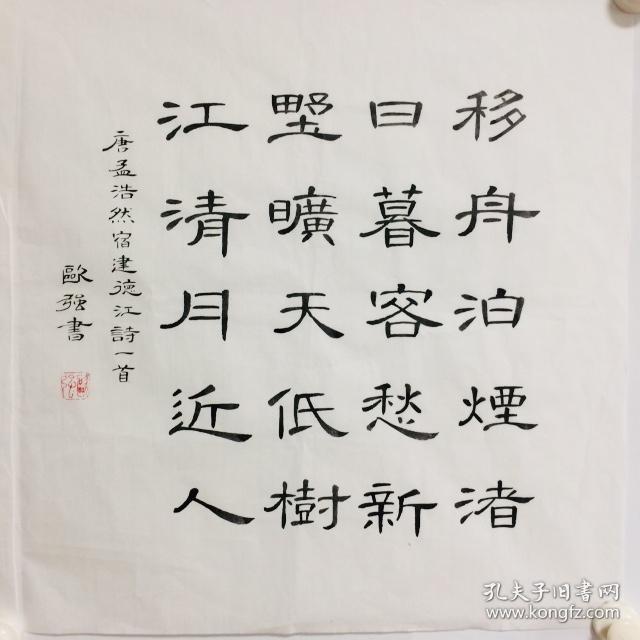 移舟泊煙渚
日暮客愁新
野曠天低樹
江清月近人
唐孟浩然宿建德江詩一首
歐强書
孔夫子旧書网
www.kongfz.com